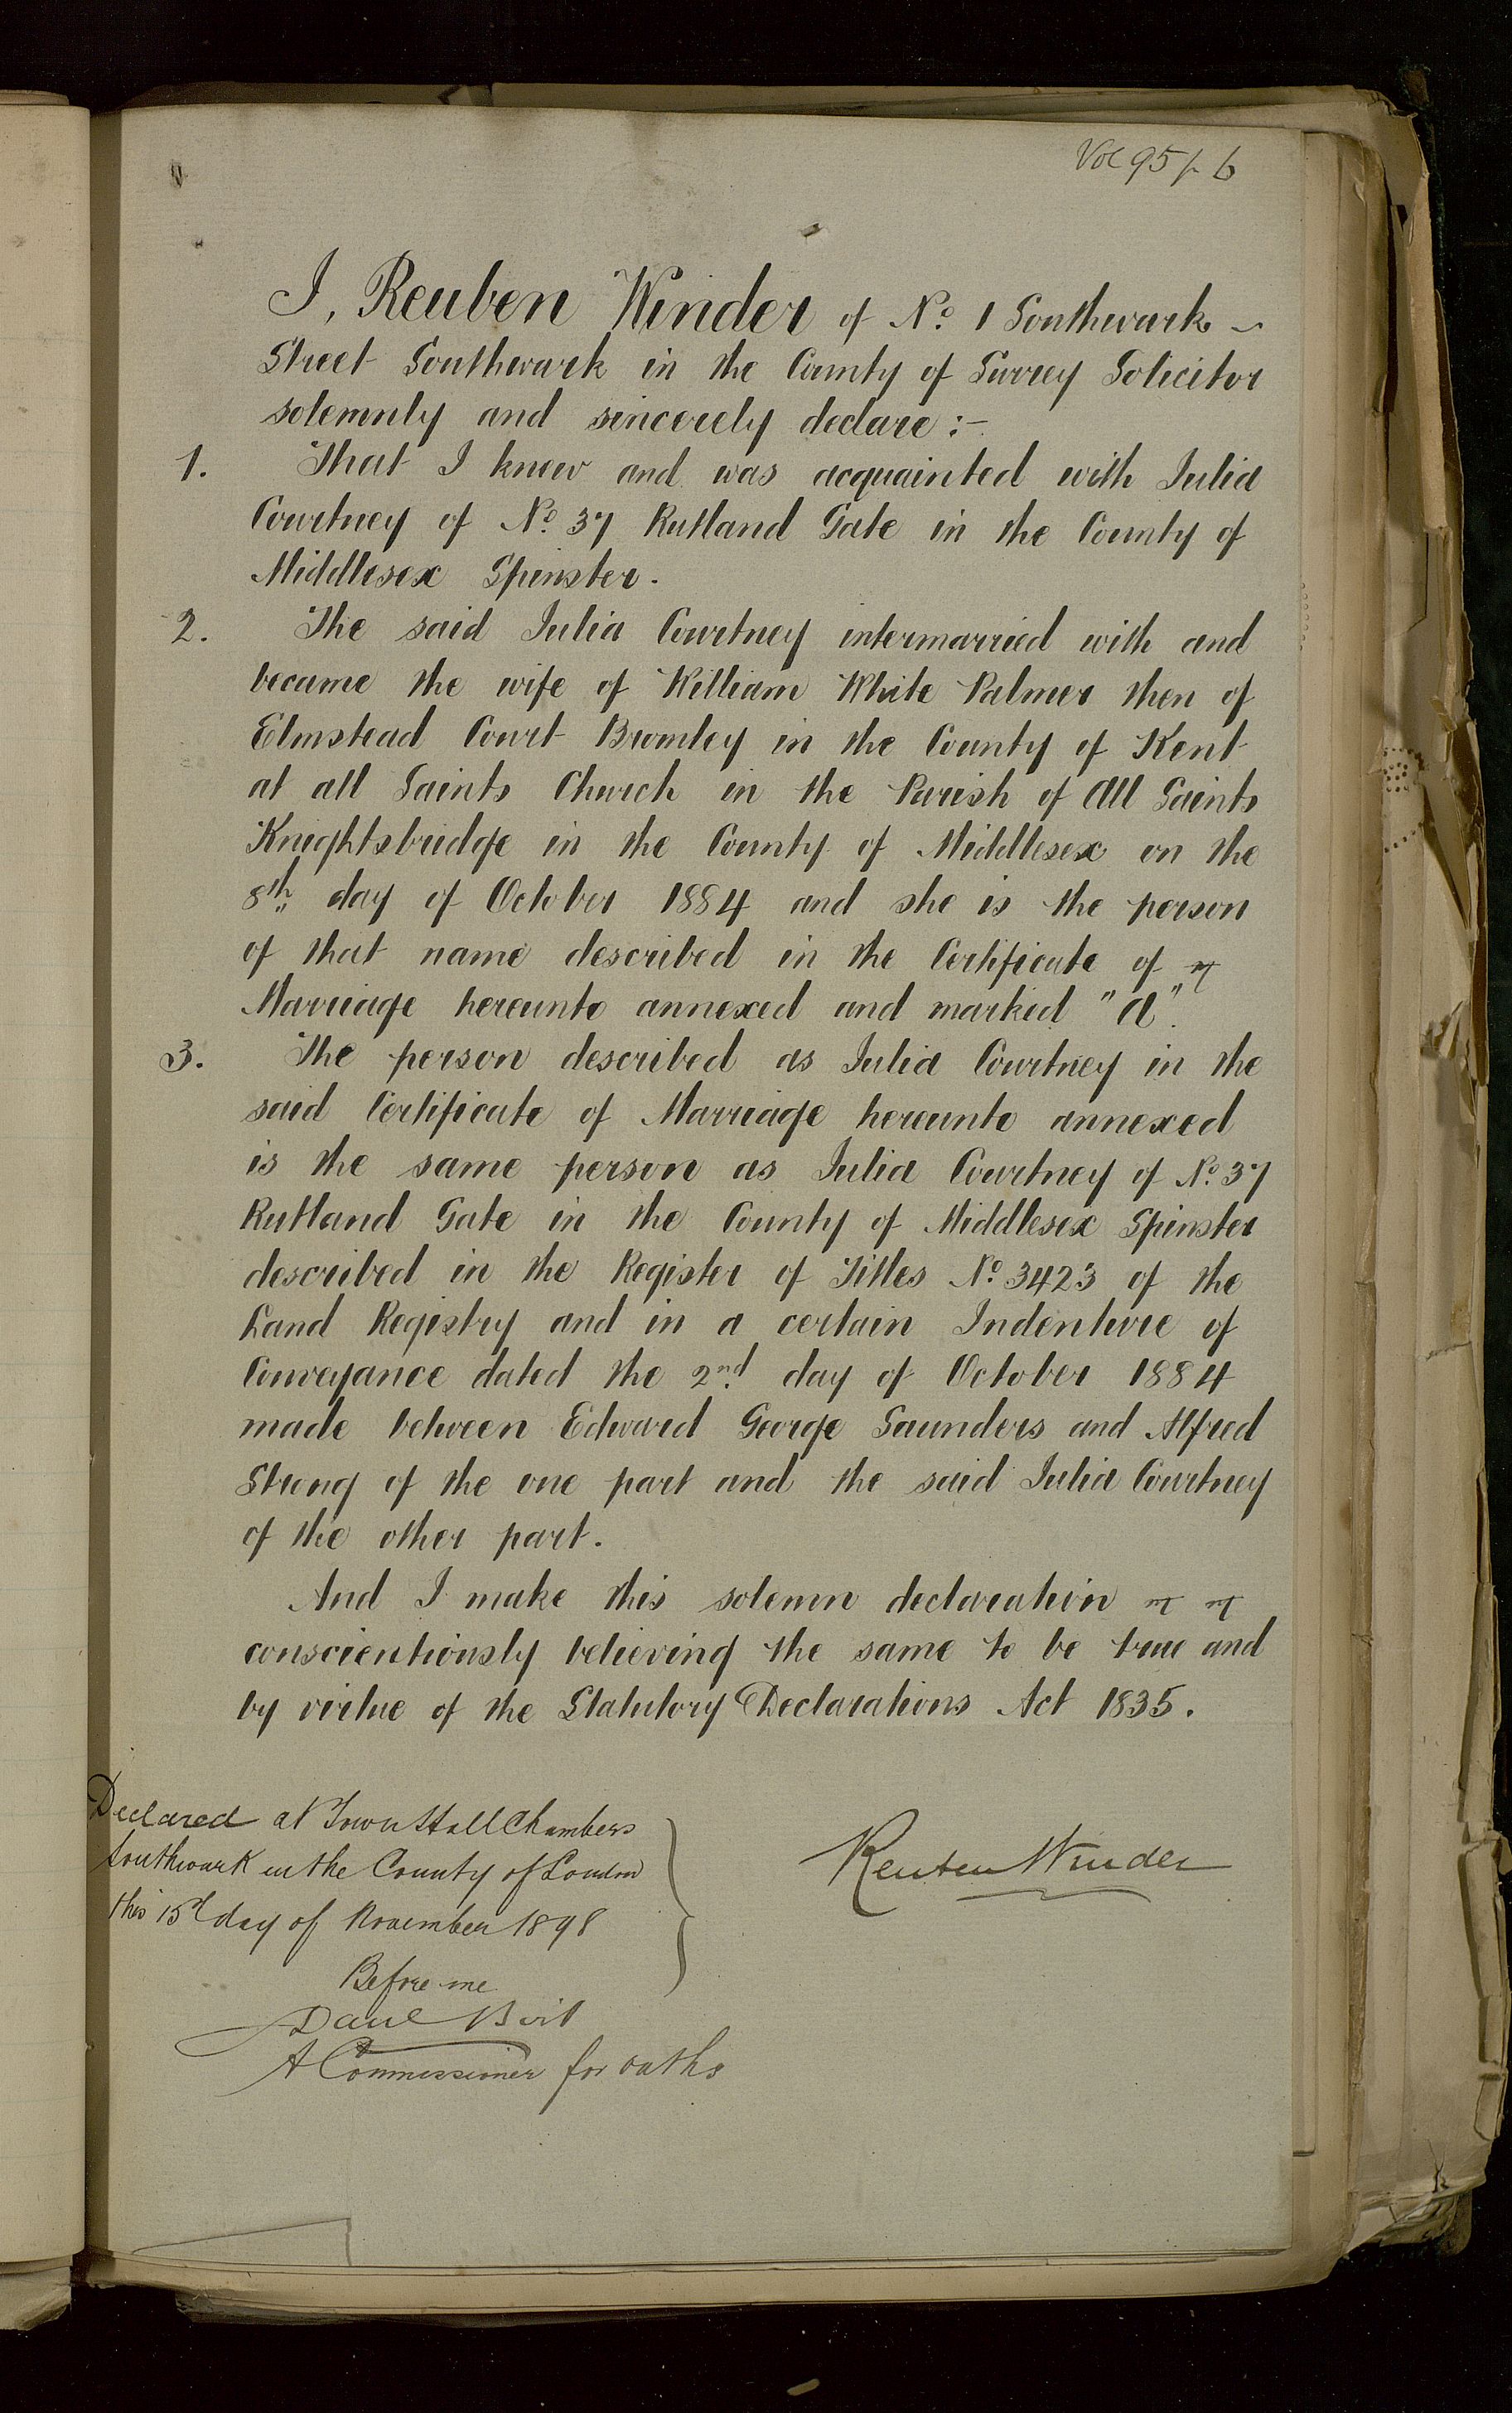 Vol 95 p 6
I, Reuben Winder of No. 1 Southwark
Street Southwark in the County of Surrey Solicitor
solemnly and sincerely declare :-
1. That I knew and was acquainted with Julia
Courtney of No. 37 Rutland Gate in the County of
Middlesex Spinster.
2. The said Julia Courtney intermarried with and
became the wife of William White Palmer then of
Elmstead Court Bromley in the County of Kent
at all Saints Church in the Parish of All Saints
Knightsbridge in the County of Middlesex on the
8th day of October 1884 and she is the person
of that name described in the Certificate of
Marriage hereunto annexed and marked "A".
3. The person described as Julia Courtney in the
said Certificate of Marriage hereunto annexed
is the same person as Julia Courtney of No. 37
Rutland Gate in the County of Middlesex Spinster
described in the Register of Titles No. 3423 of the
Land Registry and in a certain Indenture of
Conveyance dated the 2nd day of October 1884
made between Edward George Saunders and Alfred
Strong of the one part and the said Julia Courtney
of the other part.
And I make this solemn declaration
conscientiously believing the same to be true and
by virtue of the Statutory Declarations Act 1835.
Declared at Town Hall Chambers
Southwark in the County of London
this 15th day of November 1898
Reuben Winder
Before me
A Commissioner for oaths